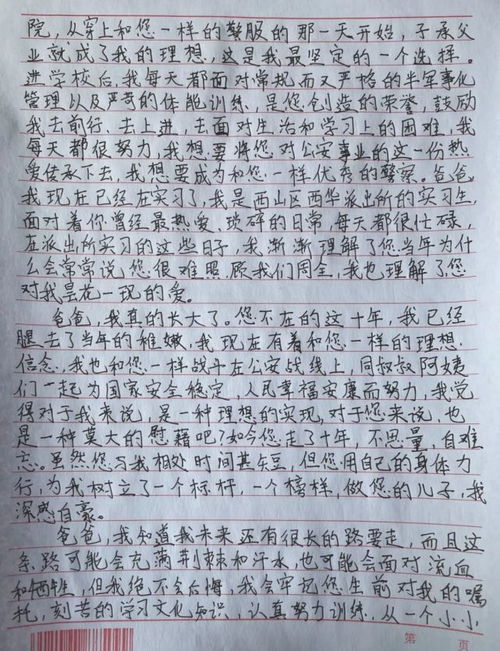 院，从穿上和您一样的警服的那一天开始，子承父
业就成了我的理想，这是我最坚定的一个选择。
进学校后，我每天都面对常规而又严格的半军事化
管理以及严苛的体能训练，是您创造的荣誉，鼓励
我去前行、去上进，去面对生活和学习上的困难，我
每天都很努力，我想要将您对公安事业的这一份热
爱传承下去，我想要成为和您一样优秀的警察。爸爸，
我现在已经在实习了，我是西山区西华派出所的实习生，
面对着你曾经最热爱、琐碎的日常，每天都很忙碌，
在派出所实习的这些日子，我渐渐理解了您当年为什
么会常常说您很难照顾我们周全，我也理解了您
对我昙花一现的爱。
爸爸，我真的长大了。您不在的这十年，我已经
腿去了当年的稚嫩，我现在有着和您一样的理想、
信念，我也和您一样战斗在公安战线上，同叔叔阿姨
们一起为国家安全稳定，人民幸福安康而努力，我觉
得对于我来说，是一种理想的实现，对于您来说，也
是一种莫大的慰藉吧？如今您走了十年，不思量，自难
忘。虽然您与我相处时间甚短，但您用自己的身体力
行，为我树立了一个标杆，一个榜样，做您的儿子，我
深感自豪。
爸爸，我知道我未来还有很长的路要走，而且这
条路可能会充满荆棘和汗水，也可能会面对流血
和牺牲，但我绝不会后悔，我会牢记您生前对我的嘱
托，刻苦的学习文化知识，认真努力训练，从一个小小
第 页